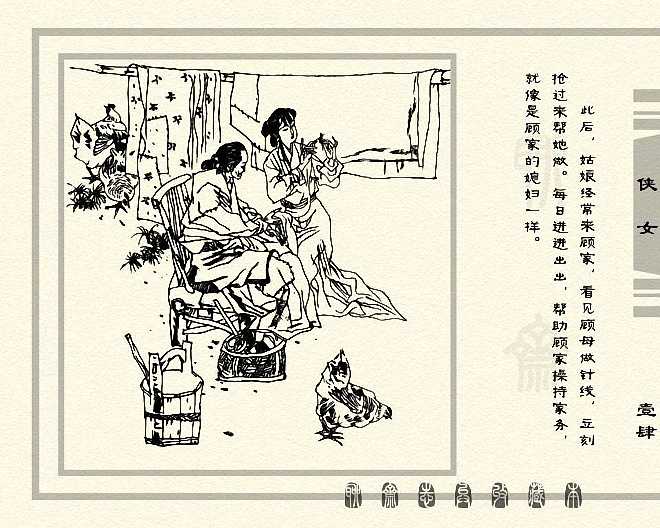 此后，姑娘经常来顾家，看见顾母做针线，立刻
抢过来帮她做。每日进进出出，帮助顾家操持家务，
就像是顾家的媳妇一样。
侠女
壹肆
聊斋志异收藏本